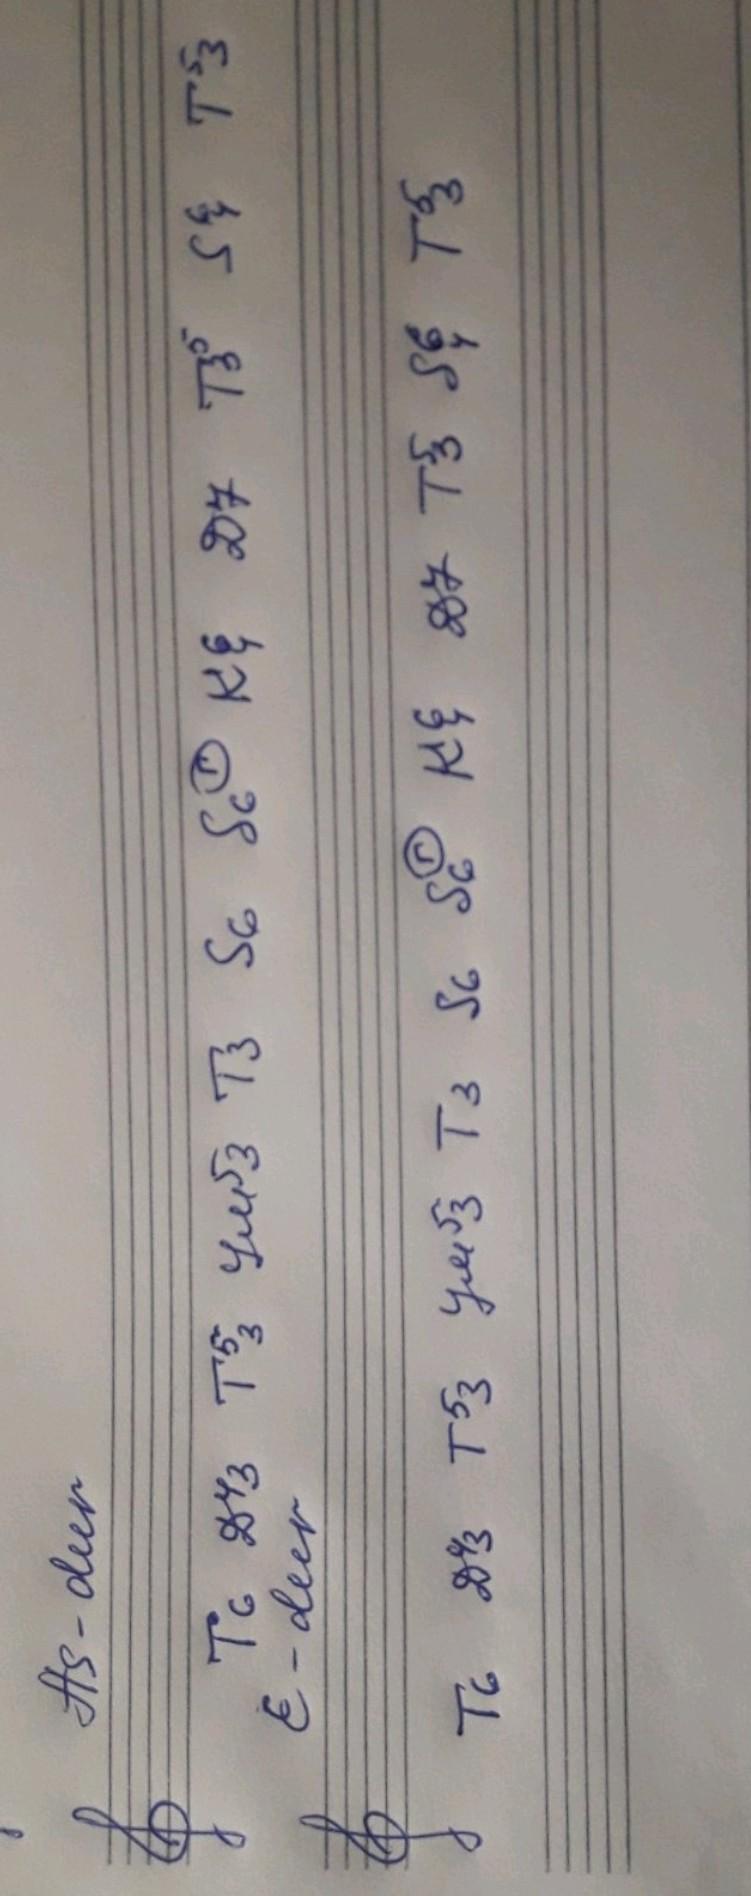 As-dur
T6 D4/3 T5/3 Ум5/3 T3 S6 S6(г) K6/4 D7 T5/3 S6/4 T5/3
E-dur
T6 D4/3 T5/3 Ум5/3 T3 S6 S6(г) K6/4 D7 T5/3 S6/4 T5/3